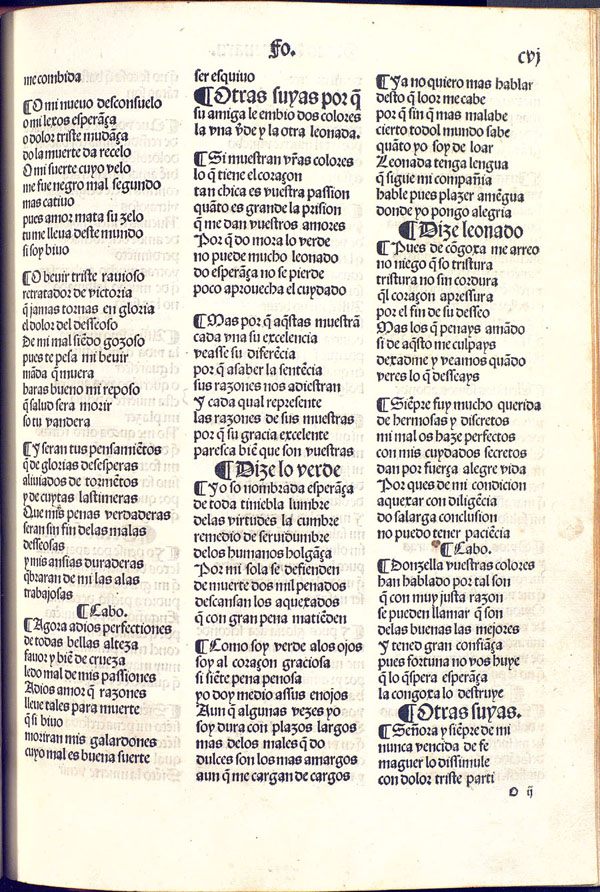 Fo.
cvj
me combida
¶O mi nueuo desconsuelo
o mi lexos esperãça
o dolor triste mudãça
do la muerte da recelo
O mi suerte cuyo velo
me fue negro mal segundo
mas catiuo
pues amor mata su zelo
tu me lleua deste mundo
si soy biuo
¶O beuir triste rauioso
retratador de victoria
q̃ jamas tornas en gloria
el dolor del desseoso
De mi mal siẽdo gozoso
pues te pesa mi beuir
mãda q̃ muera
haras bueno mi reposo
q̃ salud sera morir
so tu vandera
¶Y seran tus pensamiẽtos
q̃ de glorias desesperas
aliuiados de tormẽtos
y de cuytas lastimeras
Que mis penas verdaderas
seran sin fin delas malas
desseosas
y mis ansias duraderas
q̃braran de mi las alas
trabajosas
¶Cabo.
¶Agora adios perfectiones
de todas bellas alteza
fauor y biẽ de crueza
ledo mal de mis passiones
Adios amor q̃ razones
lleue tales para muerte
q̃ si biuo
moriran mis galardones
cuyo mal es buena suerte
ser esquiuo
¶Otras suyas por q̃
su amiga le embio dos colores
la vna v̾de y la otra leonada.
¶Si muestran vr̃as colores
lo q̃ tiene el coraçon
tan chica es vuestra passion
quãto es grande la prision
q̃ me dan vuestros amores
Por q̃ do mora lo verde
no puede mucho leonado
do esperãça no se pierde
poco aprouecha el cuydado
¶Mas por q̃ aq̃stas muestrã
cada vna su excelencia
veasse su diferẽcia
por q̃ a saber la sentẽcia
sus razones nos adiestran
Y cada qual represente
las razones de sus muestras
por q̃ su gracia excelente
paresca biẽ que son vuestras
¶Dize lo verde
¶Yo so nombrada esperãça
de toda tiniebla lumbre
delas virtudes la cumbre
remedio de seruidumbre
delos humanos holgãça
Por mi sola se defienden
de muerte dos mil penados
descansan los aquexados
q̃ con gran pena matiẽden
¶Como soy verde alos ojos
soy al coraçon graciosa
si siete pena penosa
yo doy medio assus enojos
Aun q̃ algunas vezes yo
soy dura con plazos largos
mas delos males q̃ do
dulces son los mas amargos
aun q̃ me cargan de cargos
¶Ya no quiero mas hablar
desto q̃ loor me cabe
por q̃ sin q̃ mas malabe
cierto todol mundo sabe
quãto yo soy de loar
Leonada tenga lengua
q̃ sigue mi compañia
hable pues plazer amẽgua
donde yo pongo alegria
¶Dize leonado
¶Pues de cõgoxa me arreo
no niego q̃ so tristura
tristura no sin cordura
q̃l coraçon apressura
por el fin de su desseo
Mas los q̃ penays amãdo
si de aq̃sto me culpays
dexadme y veamos quãdo
veres lo q̃ desseays
¶Siẽpre fuy mucho querida
de hermosas y discretos
mi mal os haze perfectos
con mis cuydados secretos
dan por fuerça alegre vida
Por ques de mi condicion
aquexar con diligẽcia
do salarga conclusion
no puedo tener paciẽcia
¶Cabo.
¶Donzella vuestras colores
han hablado por tal son
q̃ con muy justa razon
se pueden llamar q̃ son
delas buenas las mejores
Y tened gran confiãça
pues fortuna no vos huye
q̃ lo q̃spera esperãça
la congoxa lo destruye
¶Otras suyas.
¶Señora y siẽpre de mi
nunca vencida de fe
maguer lo dissimule
con dolor triste parti
O ij